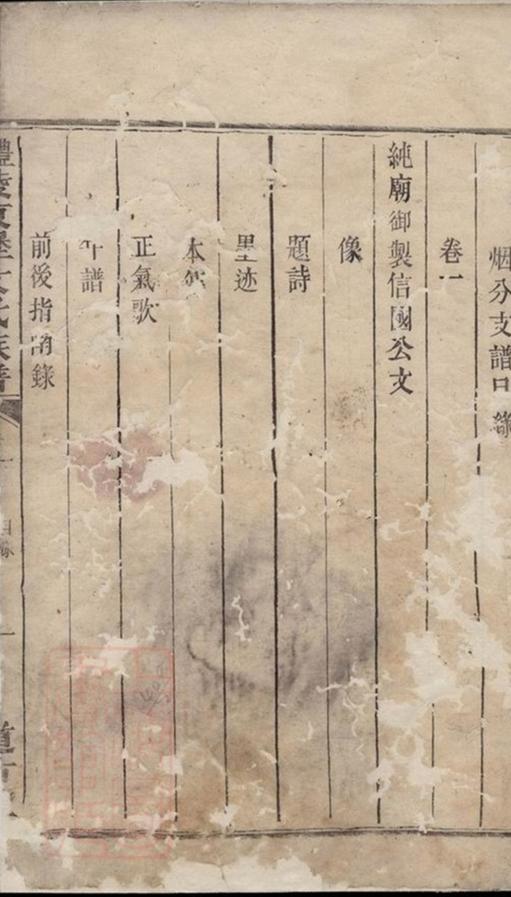 烟分支譜目錄
卷一
純廟御製信國公文
像
題詩
墨迹
本傳
正氣歌
年譜
前後指南錄
氏族譜
目錄